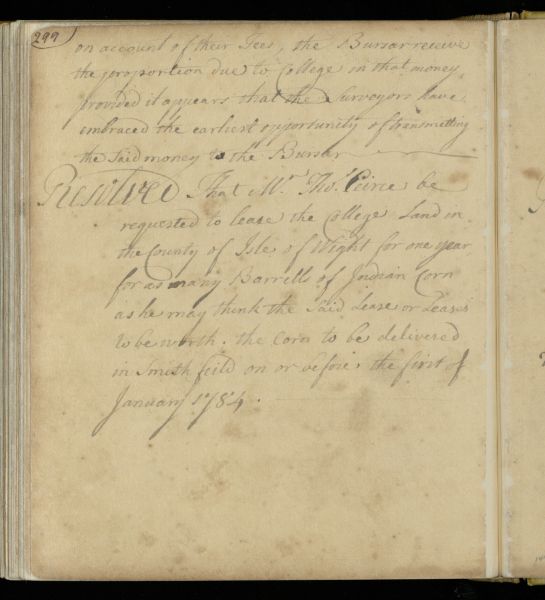 299
on account of their Fees, the Bursar receive
the proportion due to College in that money,
provided it appears that the Surveyors have
embraced the earliest opportunity of transmitting
the said money to the Bursar
Resolved That Mr. Thos. Peirce be
requested to lease the College Land in
the County of Isle of Wight for one year
for as many Barrells of Indian Corn
as he may think the said Lease or Leases
to be worth. the Corn to be delivered
in Smith feild on or before the first of
January 1784.